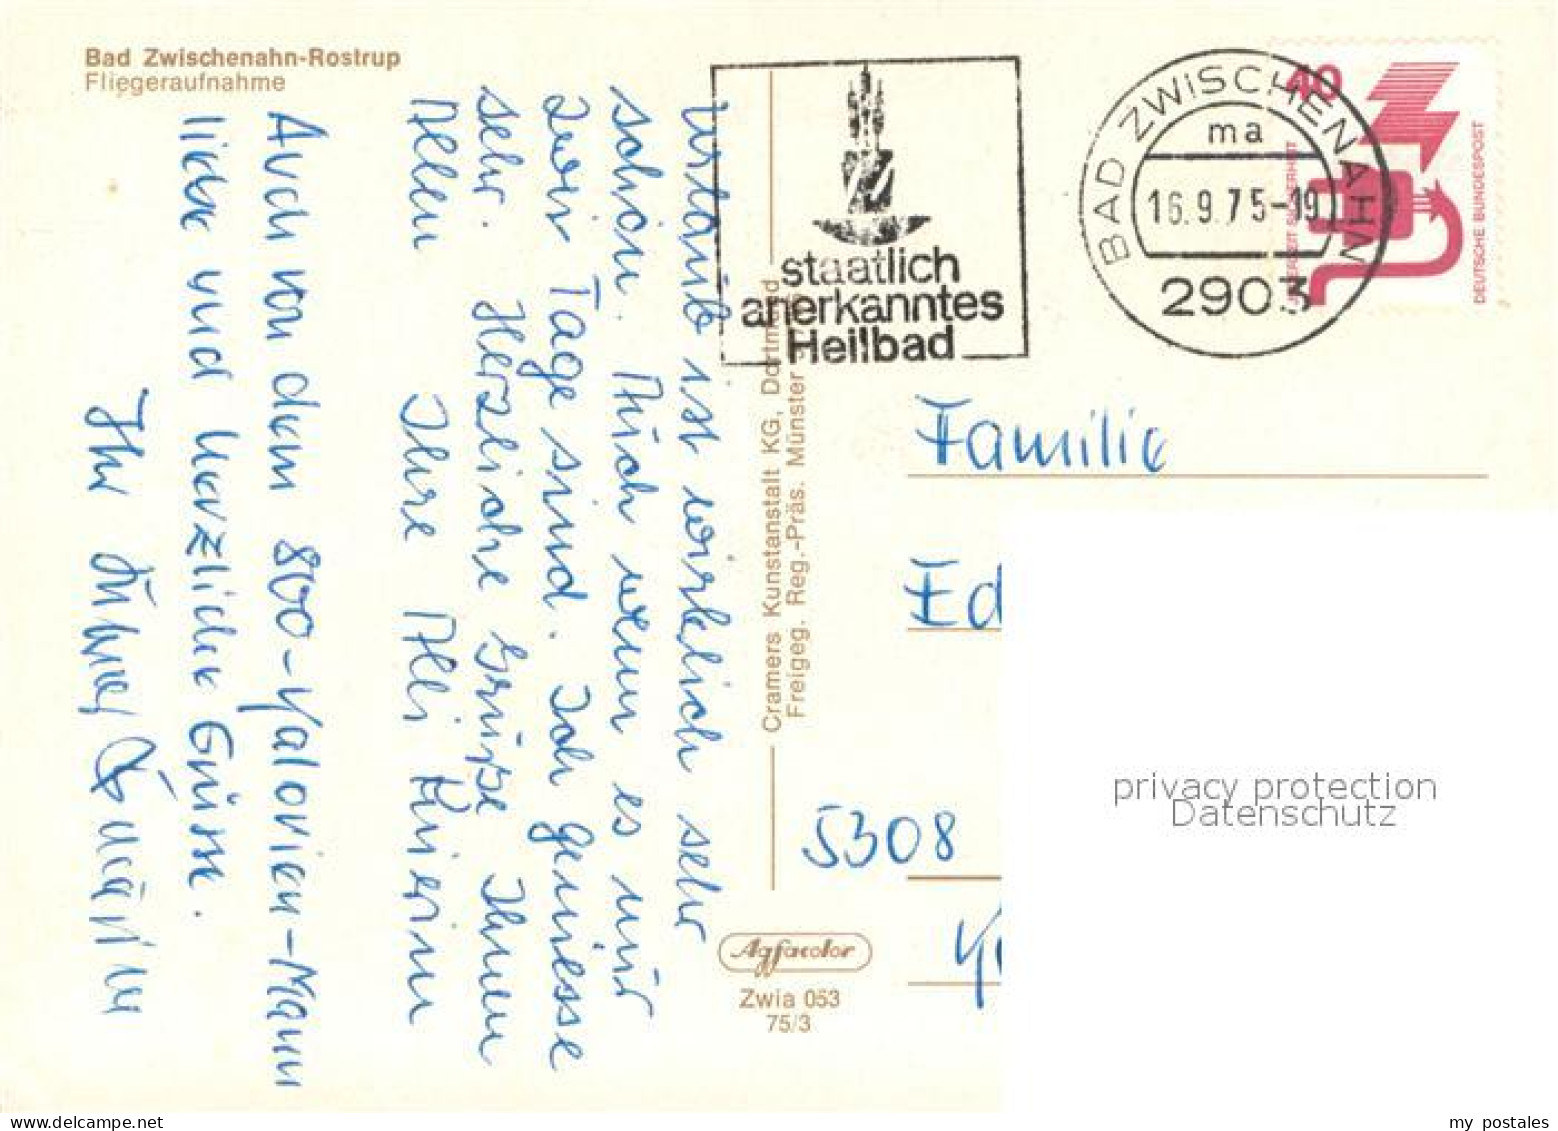 Bad Zwischenahn-Rostrup
Fliegeraufnahme
Urlaub ist wirklich sehr
schön. Auch wenn es nur
zwei Tage sind. Ich geniesse
sehr. Herzliche Grüße Ihnen
Allen Ihre
Auch von dem 800-Kalorien-Mann
liebe und herzliche Grüsse.
Ihr
Cramers Kunstanstalt KG, Dortmund
Freigeg. Reg.-Präs. Münster
Agfacolor
Zwia 053
75/3
staatlich
anerkanntes
Heilbad
BAD ZWISCHENAHN
ma
16.9.75-19
2903
40
DEUTSCHE BUNDESPOST
Familie
Ed
5308
privacy protection
Datenschutz
my postales